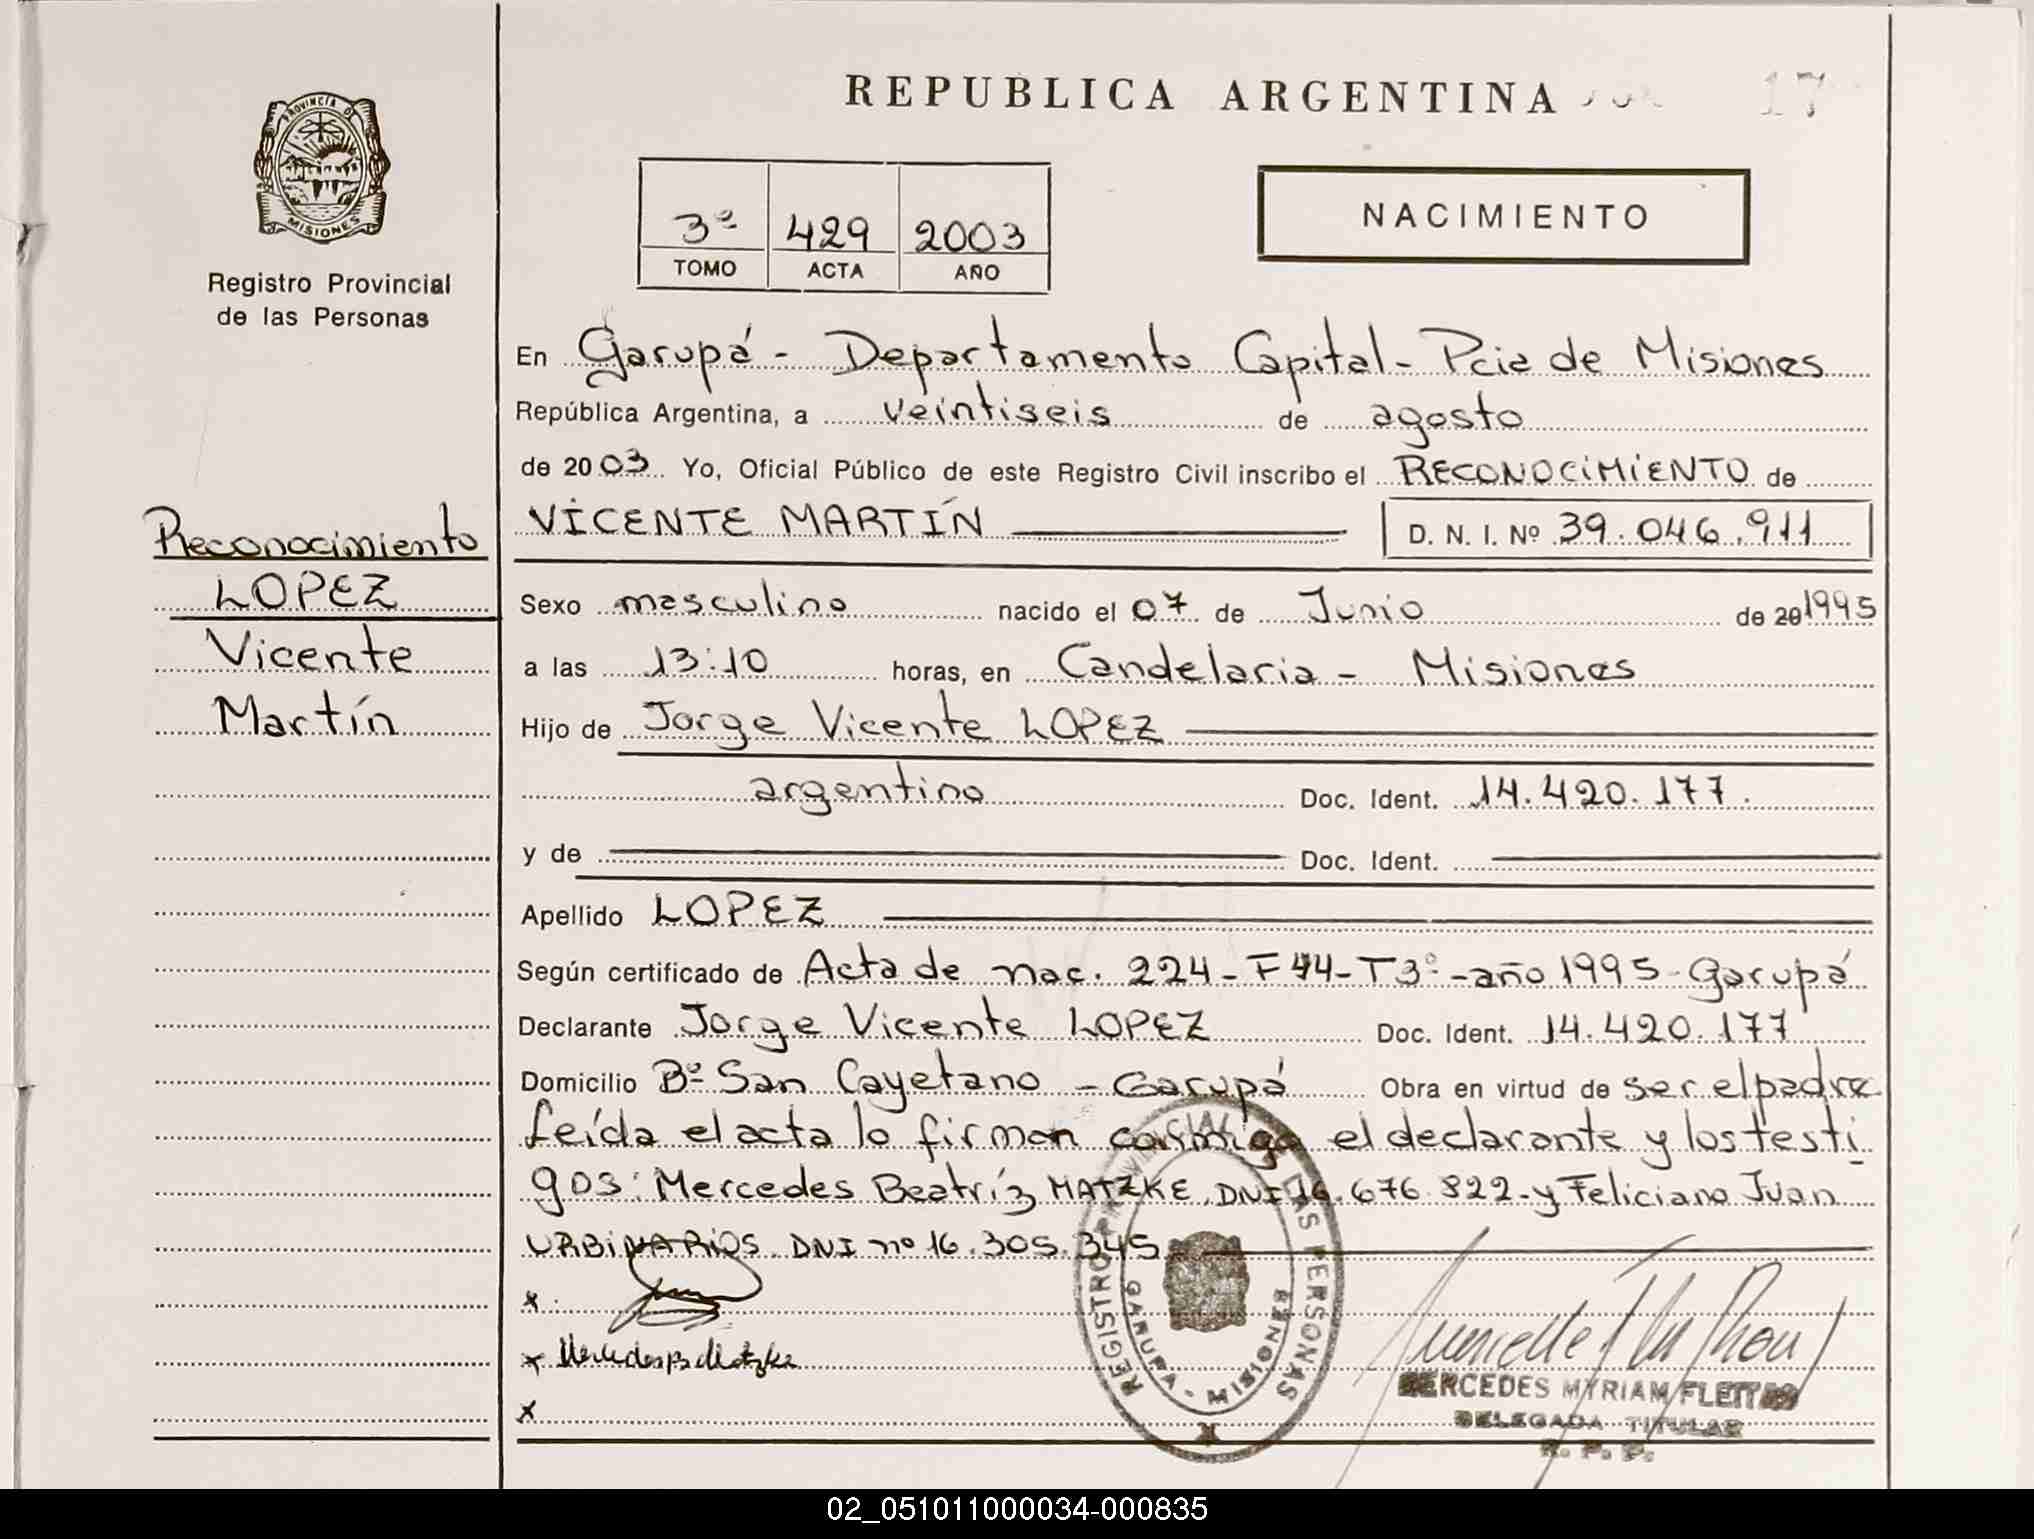 REPUBLICA ARGENTINA
17
PROVINCIA DE
MISIONES
Registro Provincial
de las Personas
3º 429 2003
TOMO ACTA AÑO
NACIMIENTO
En Garupá - Departamento Capital - Pcia de Misiones
República Argentina, a veintiseis de agosto
de 2003 Yo, Oficial Público de este Registro Civil inscribo el RECONOCIMIENTO de
VICENTE MARTÍN D. N. I. Nº 39.046.911
Reconocimiento
LOPEZ
Vicente
Martín
Sexo masculino nacido el 07 de Junio de 20 1995
a las 13:10 horas, en Candelaria - Misiones
Hijo de Jorge Vicente LOPEZ
argentino Doc. Ident. 14.420.177.
y de Doc. Ident.
Apellido LOPEZ
Según certificado de Acta de nac. 224 - F 44 - T 3º - año 1995 - Garupá
Declarante Jorge Vicente LOPEZ Doc. Ident. 14.420.177
Domicilio Bº San Cayetano - Garupá Obra en virtud de ser el padre
Leída el acta lo firman conmigo el declarante y los testi
gos: Mercedes Beatríz MATZKE, DNI 16.676.822 - y Feliciano Juan
URBINARIOS DNI nº 16.305.345
x
x Mercedes B Matzke
x
REGISTRO PROVINCIAL DE LAS PERSONAS
GARUPA - MISIONES
MERCEDES MYRIAM FLEITAS
DELEGADA TITULAR
R. P. P.
02_051011000034-000835